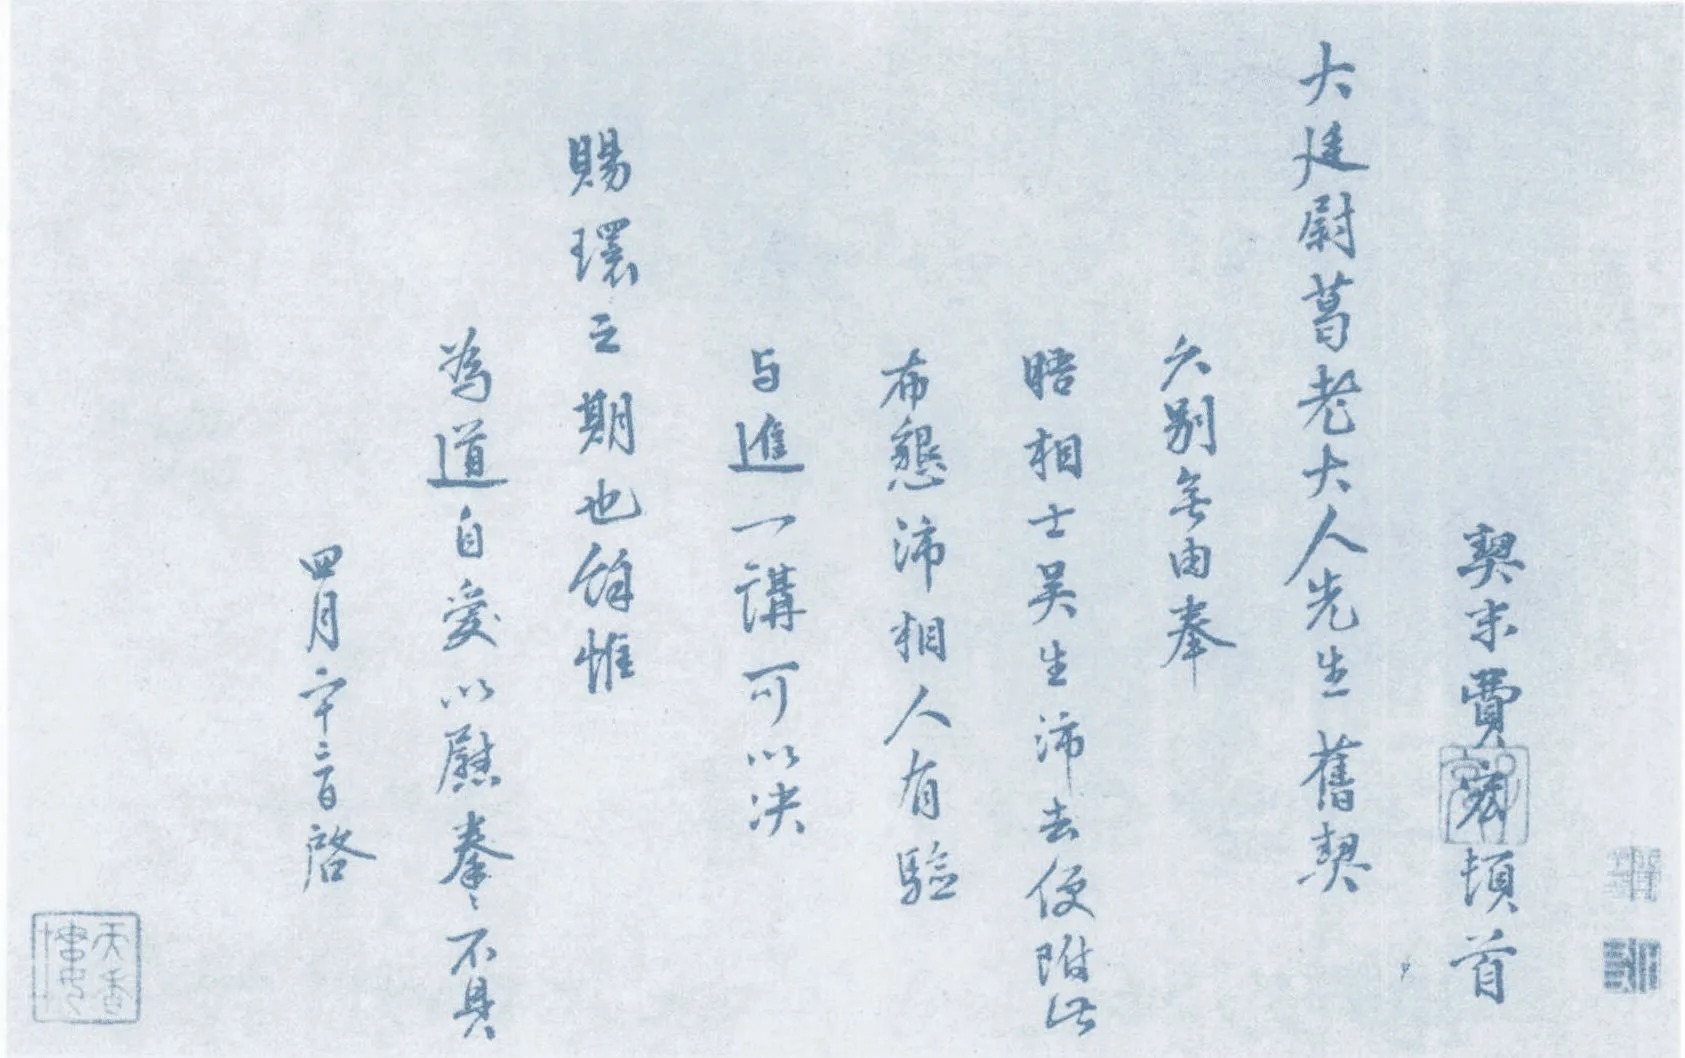 契末費宏頓首
大廷尉葛老大人先生舊契
久別無由奉
晤相士吴生沛去便附此
布懇沛相人有驗
与進一講可以决
賜環之期也餘惟
為道自愛以慰眷眷不具
四月二十二日啓